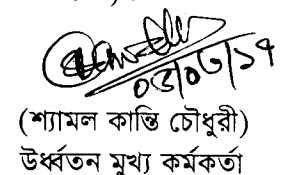 ০৫/০৩/১৭
(শ্যামল কান্তি চৌধুরী)
উর্ধ্বতন মুখ্য কর্মকর্তা